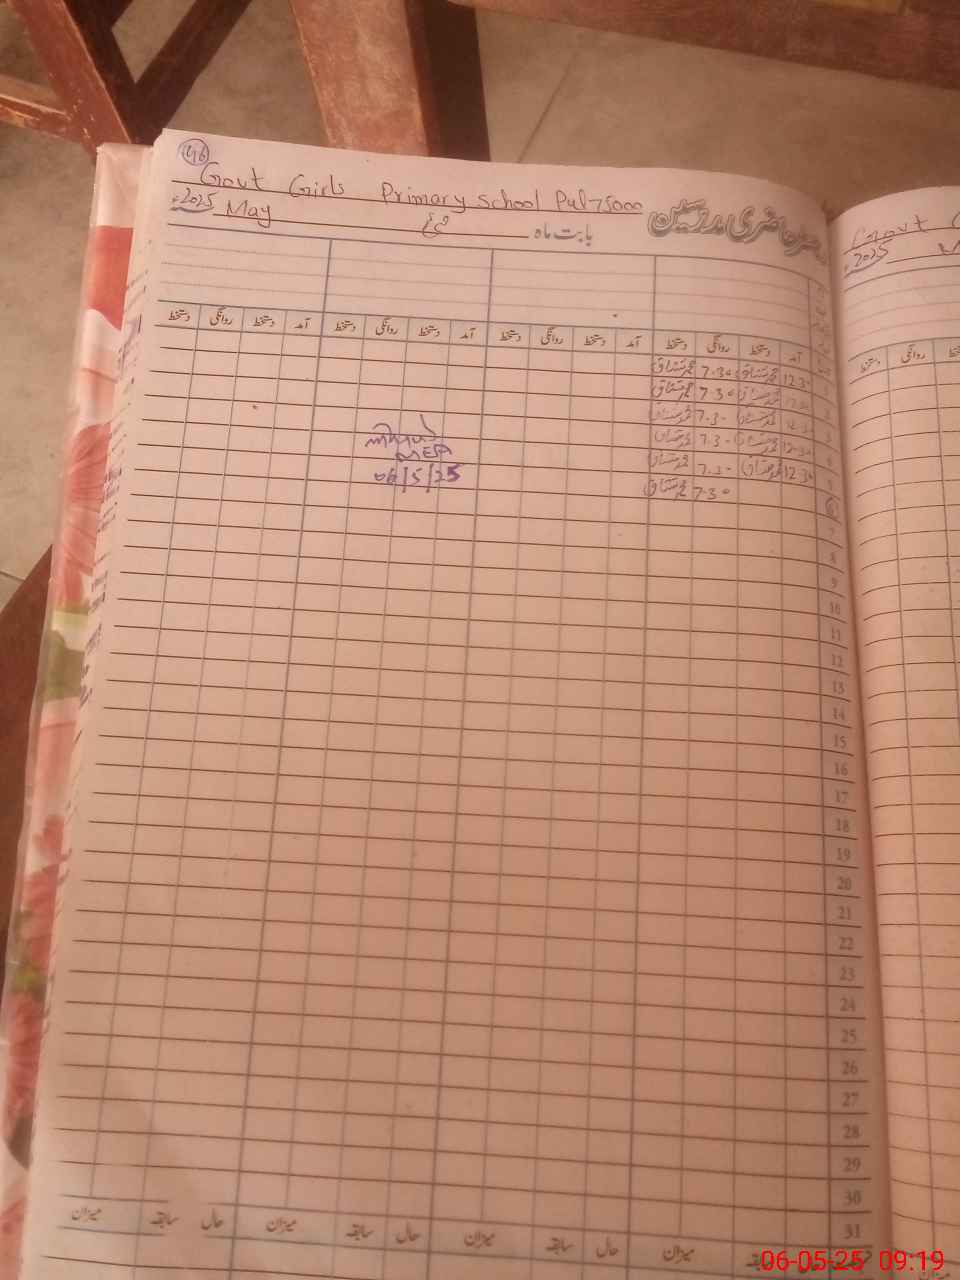 46
Govt Girls Primary School Pul 75000
رجسٹر حاضری مدرسین
2025 May
بابت ماہ
آمد دستخط روانگی دستخط آمد دستخط روانگی دستخط آمد دستخط روانگی دستخط آمد دستخط روانگی دستخط
1 12.30 محمد مشتاق 7.30 محمد مشتاق
2 12.30 محمد مشتاق 7.30 محمد مشتاق
3 12.30 محمد مشتاق 7.30 محمد مشتاق
4 12.30 محمد مشتاق 7.30 محمد مشتاق
5 12.30 محمد مشتاق 7.30 محمد مشتاق
6 7.30 محمد مشتاق
MEA
06/5/25
7
8
9
10
11
12
13
14
15
16
17
18
19
20
21
22
23
24
25
26
27
28
29
30
31
سابقہ میزان حال سابقہ میزان حال سابقہ میزان حال سابقہ میزان
Govt
2025
روانگی دستخط
06-05-25 09:19